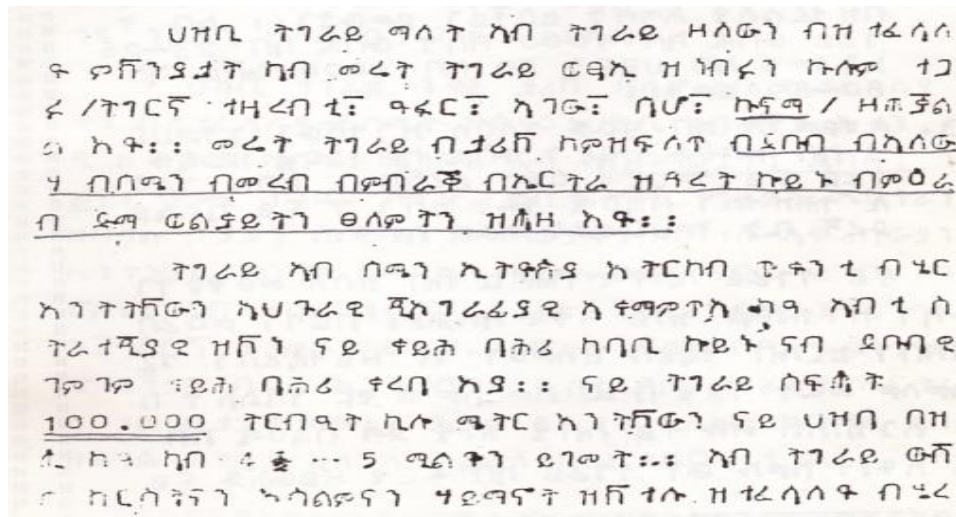 ህዝቢ ትግራይ ማለት ኣብ ትግራይ ዘለውን ብዝተፈላለ
ዩ ምኽንያታት ካብ መሬት ትግራይ ወፃኢ ዝነብሩን ኩሎም ተጋ
ሩ /ትግርኛ ተዛረብቲ፡ ዓፋር፡ ኣገው፡ ሳሆ፡ ኩናማ / ዘጠቃል
ል እዩ፡፡ መሬት ትግራይ ብታሪኽ ከምዝፍለጥ ብደቡብ ብኣለው
ሃ ብሰሜን ብመረብ ብምብራቕ ብኤርትራ ዝዳረት ኮይኑ ብምዕራ
ብ ድማ ወልቃይትን ፀለምትን ዝሕዝ እዩ፡፡
ትግራይ ኣብ ሰሜን ኢትዮጵያ እትርከብ
እንትትኸውን ኣህጉራዊ ጂኦግራፊያዊ ኣቀማምጥኣ ኣብቲ ስ
ትራተጂያዊ ዝኾነ ናይ ቀይሕ ባሕሪ ከባቢ ኮይኑ ናብ ደቡባዊ
ገምገም ቀይሕ ባሕሪ ቀረባ እያ፡፡ ናይ ትግራይ ስፍሓት
100.000 ትርብዒት ኪሎ ሜትር እንትኸውን ናይ ህዝቢ በዝ
ካብ 4 ... 5 ሚልዮን ይገመት፡፡ ኣብ ትግራይ ውሽ
ክርስትናን እስልምናን ሃይማኖት ዝኽተሉ ዝተፈላለዩ ብሄረ